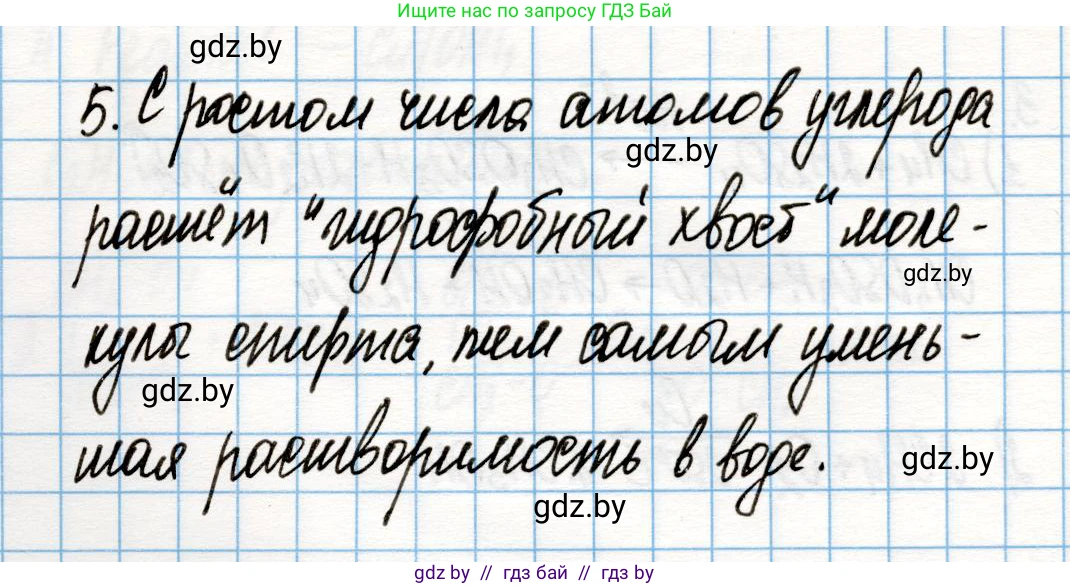 Ищите нас по запросу ГДЗ Бай
gdz.by
5. С ростом числа атомов углерода
gdz.by
растёт "гидрофобный хвост" моле-
gdz.by
кулы спирта, тем самым умень-
gdz.by
шая растворимость в воде.
gdz.by
gdz.by
gdz by // гдз бай // гдз by